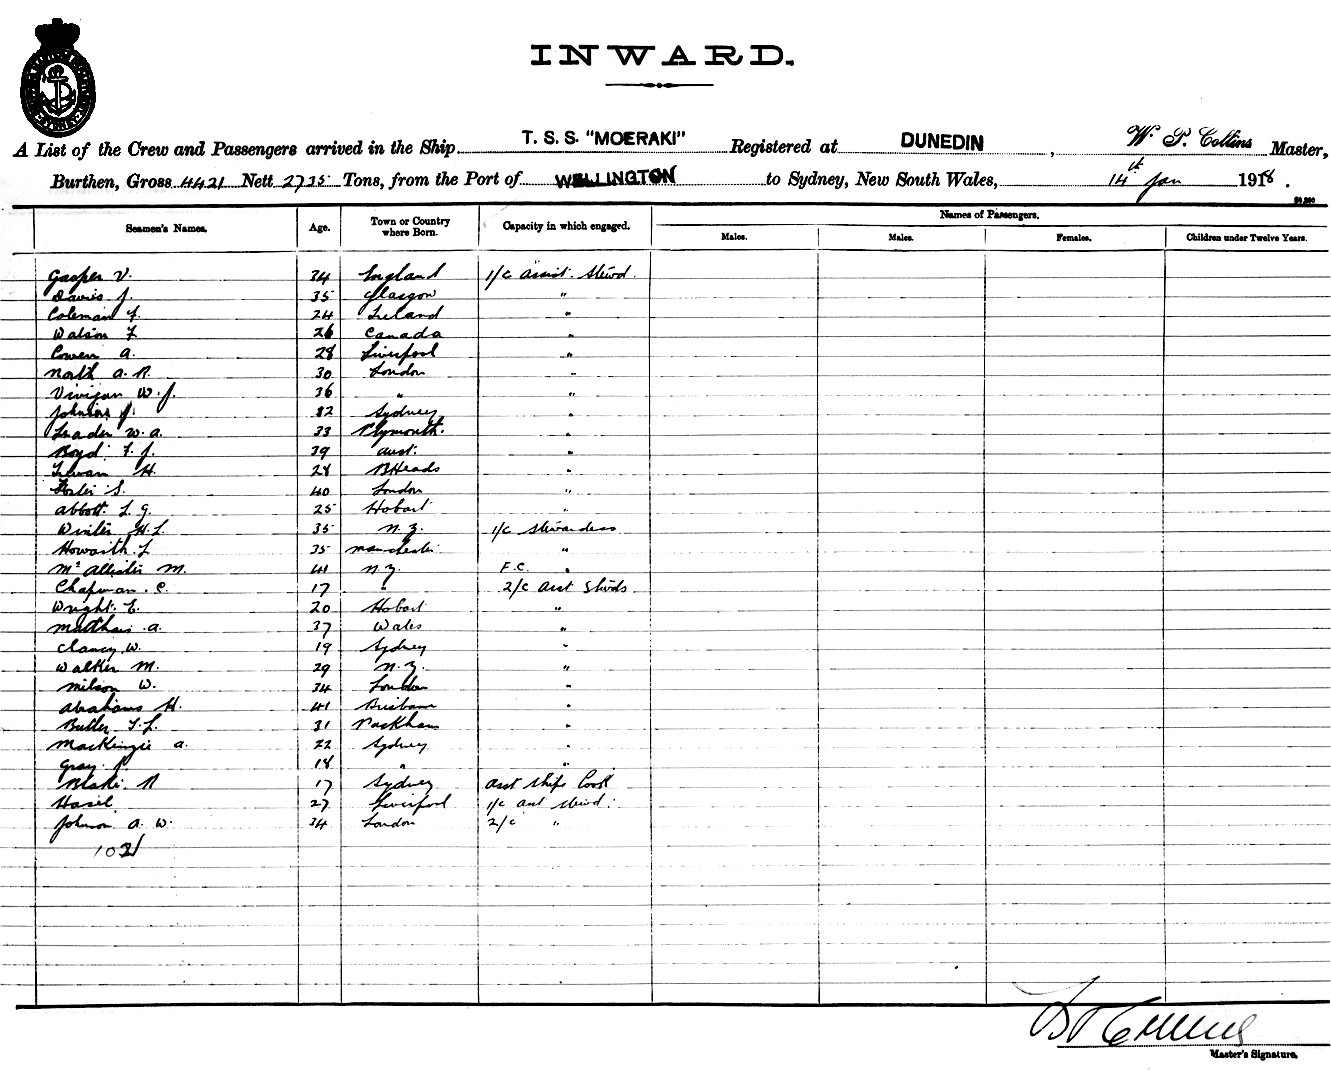 INWARD.
A List of the Crew and Passengers arrived in the Ship T. S. S. "MOERAKI" Registered at DUNEDIN, W. P. Collins Master,
Burthen, Gross 4421 Nett 2735 Tons, from the Port of WELLINGTON to Sydney, New South Wales, 14th Jan 1918.
Seamen's Names. Age. Town or Country where Born. Capacity in which engaged. Names of Passengers.
Males. Males. Females. Children under Twelve Years.
Gasper V. 34 England 1/c assist. stewd
Davis J. 35 Glasgow "
Coleman F. 24 Ireland "
Watson F. 26 Canada "
Cowen A. 28 Liverpool "
North A. R. 30 London "
Vivigan W. J. 36 " "
J. Sydney "
Leader W. A. 33 Plymouth. "
Boyd F. J. 39 Aust. "
H. 28 B Heads "
S. 40 London "
Abbott. L. G. 25 Hobart "
Winter H. L. 35 N. Z. 1/c stewardess
Howarth. L 35 Manchester "
McAllister M. 41 N. Z. F. C. "
Chapman. C. 17 " 2/c asst stwds
Wright. E. 20 Hobart "
Matthais A. 37 Wales "
Clancy W. 19 Sydney "
Walker M. 29 N. Z. "
Milson W. 34 London "
Abrahams H. 41 Brisbane "
Butler F. L. 31 Packham "
MacKenzie A. 22 Sydney "
Gray 18 " "
Blake R 17 Sydney asst ships Cook
Hasel 27 Liverpool 1/c asst stewd.
Johnson A. W. 34 London 2/c "
Master's Signature.